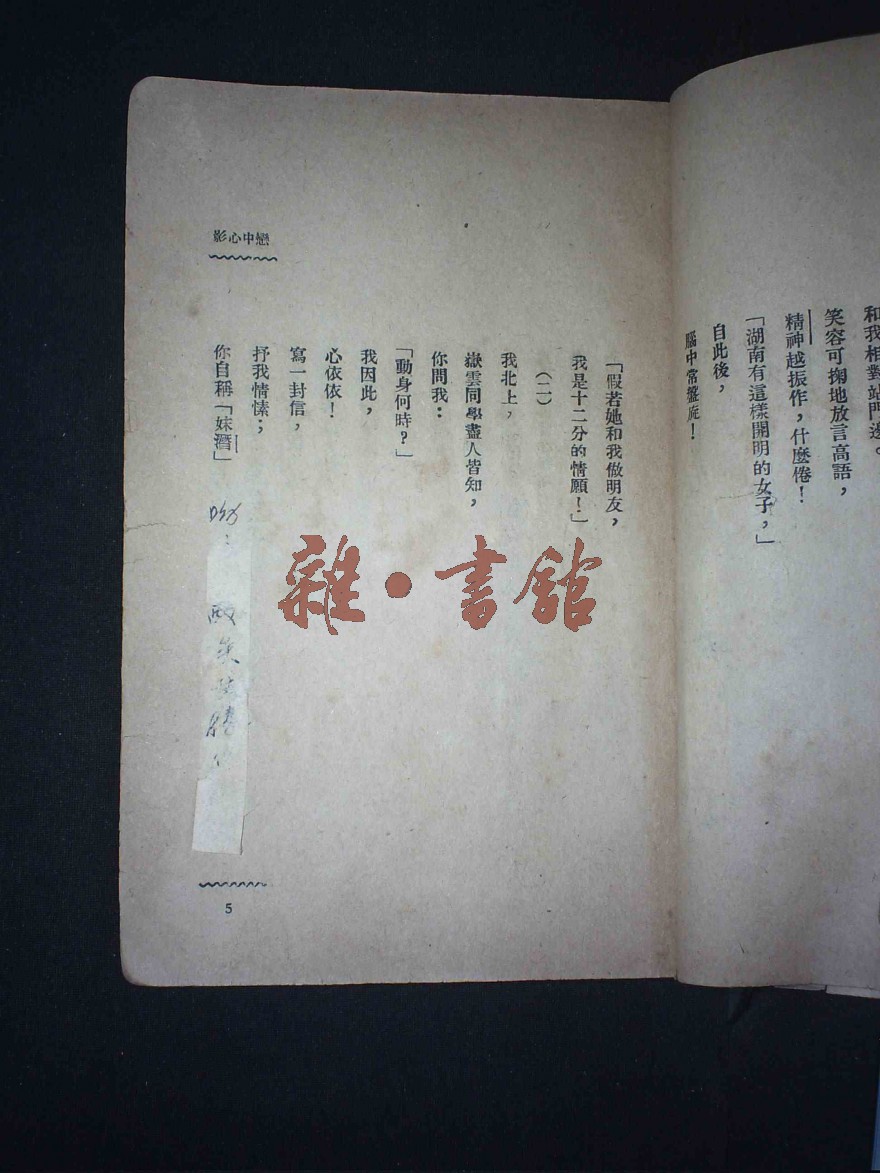 和我相對站門邊。
笑容可掬地放言高語，
精神越振作，什麼倦！
「湖南有這樣開明的女子，」
自此後，
腦中常盤旋！
「假若她和我做朋友，
我是十二分的情願！」
（二）
我北上，
嶽雲同學盡人皆知，
你問我：
「動身何時？」
我因此，
心依依！
寫一封信，
抒我情愫；
你自稱「妹潛」
影心中戀
5
雜·書館